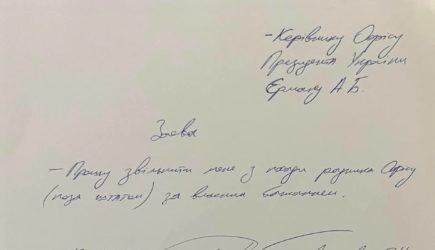 - Керівнику Офісу
Президента України
Єрмаку А.Б.
Заява
- Прошу звільнити мене з посади радника Офісу
(поза штатом) за власним бажанням.